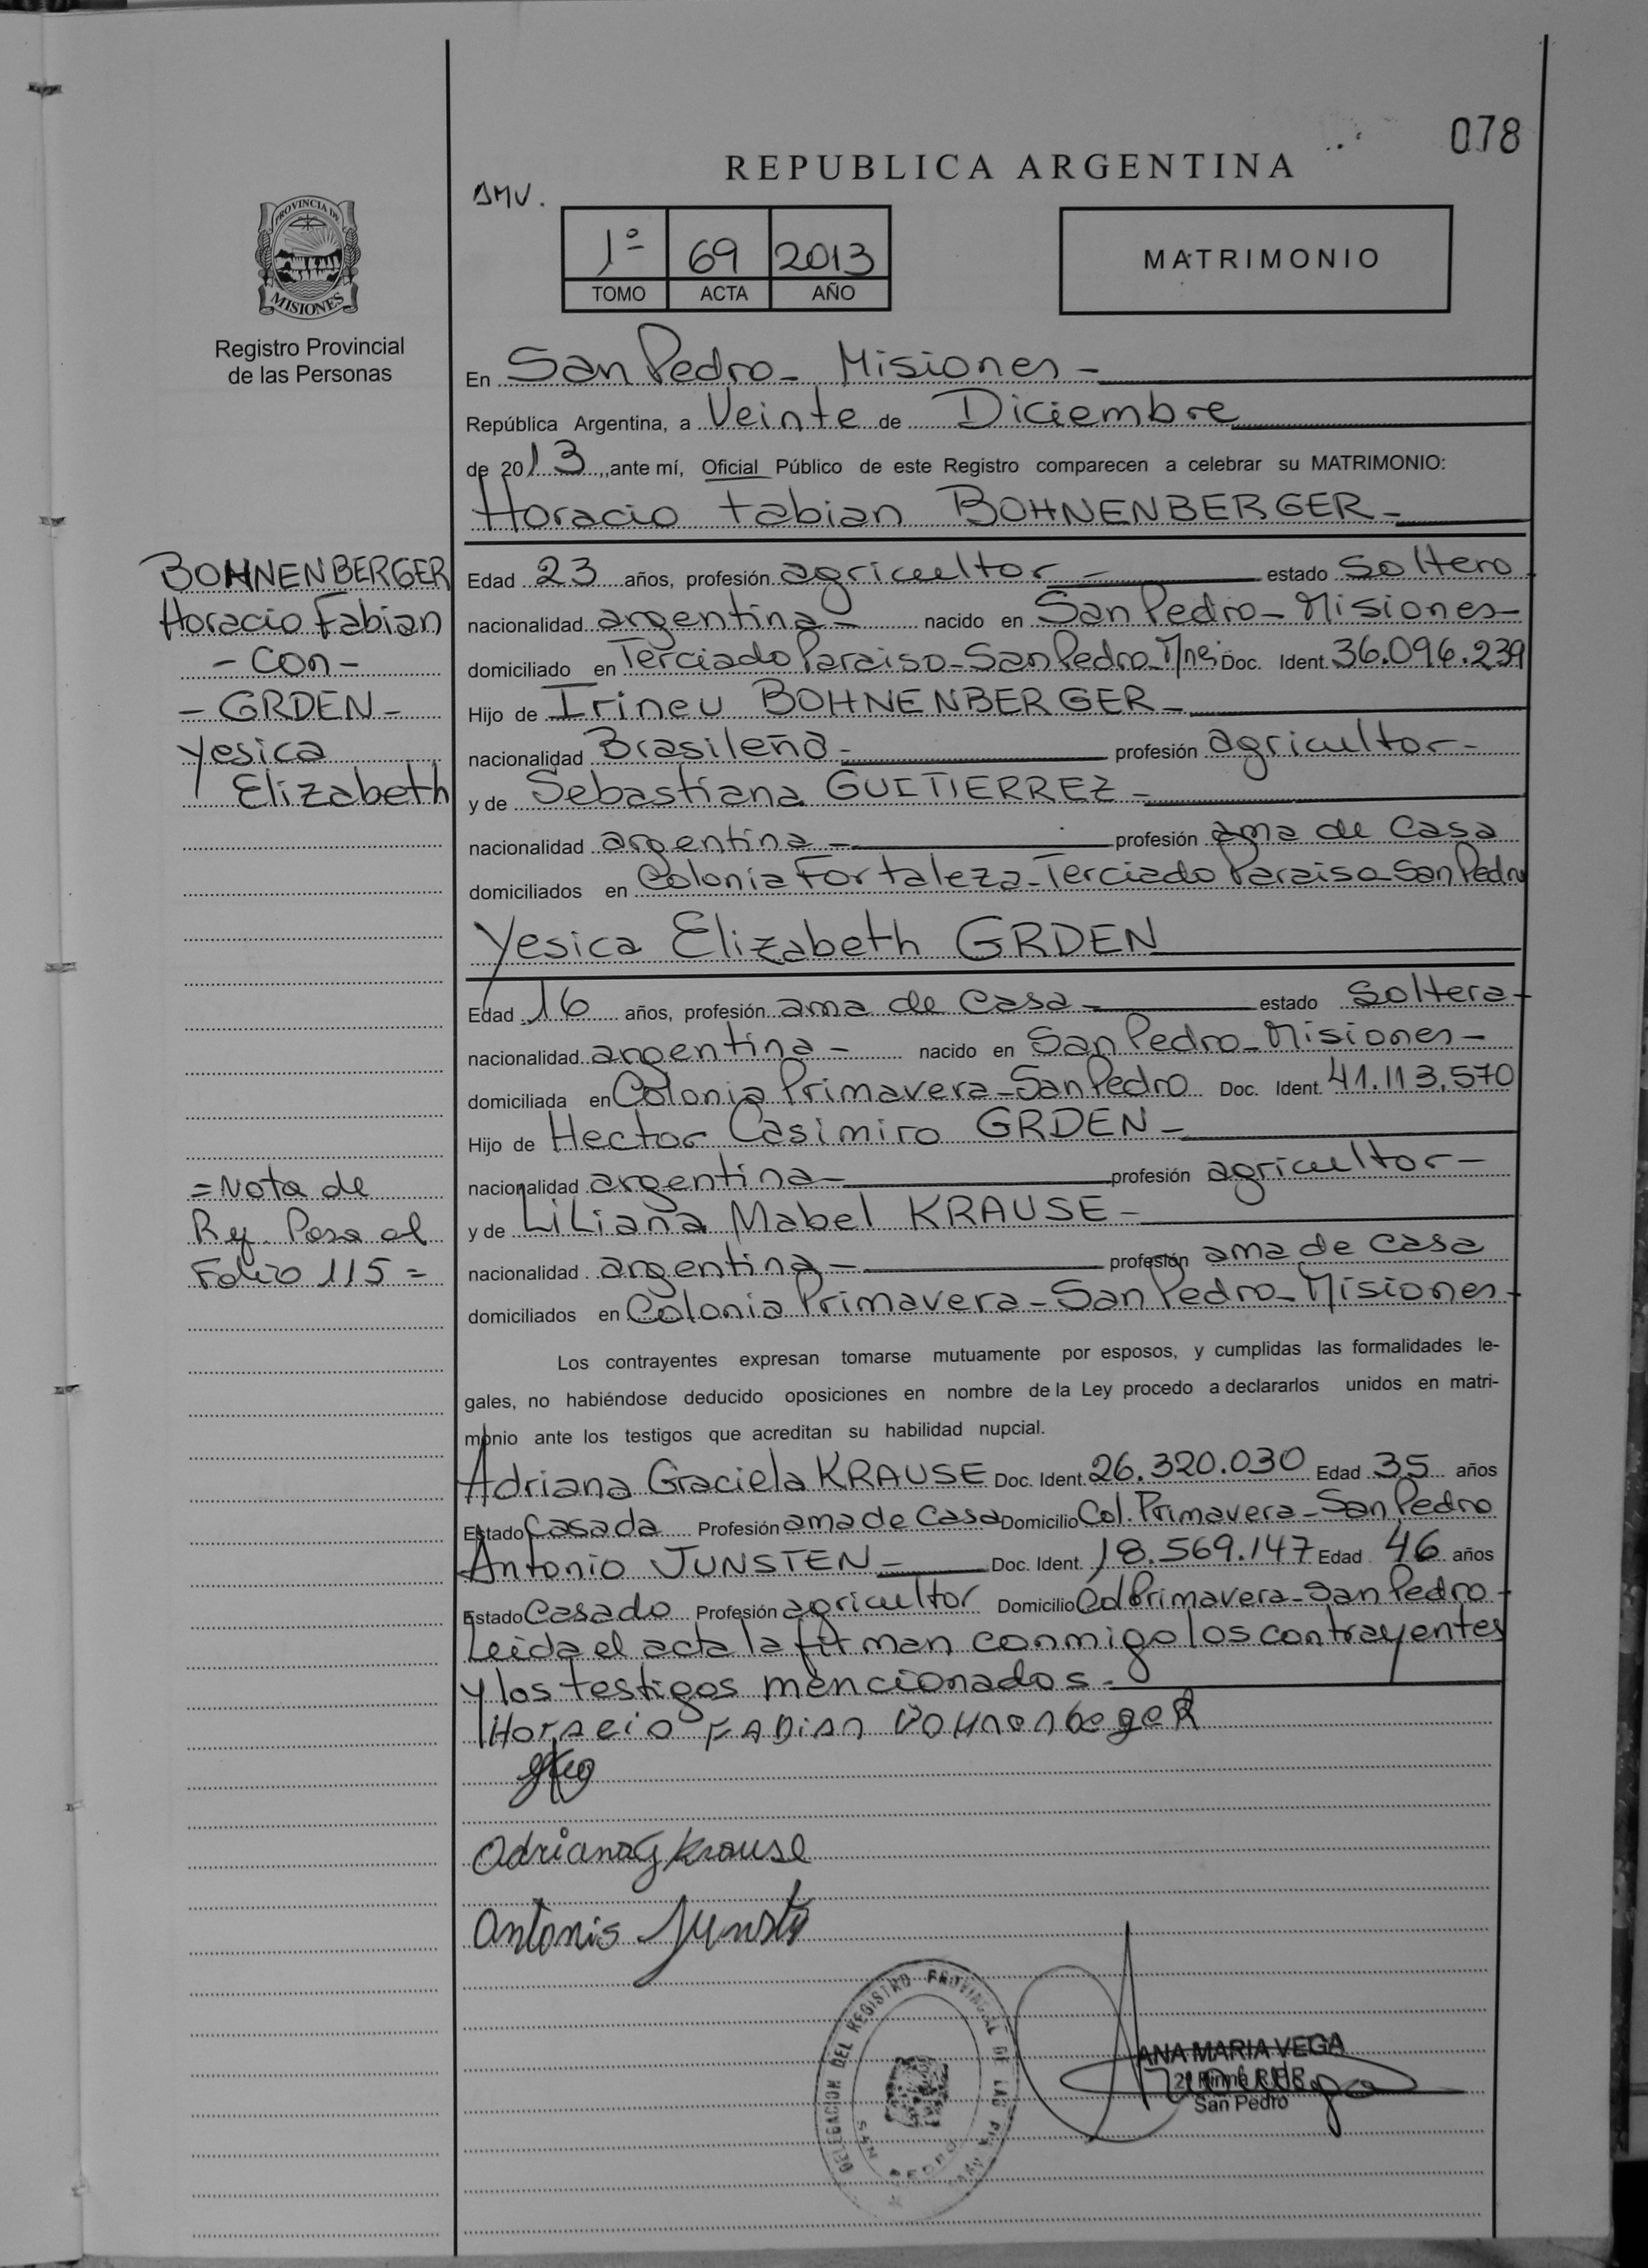 078
REPUBLICA ARGENTINA
AMV.
1º 69 2013
TOMO ACTA AÑO
MATRIMONIO
PROVINCIA DE
MISIONES
Registro Provincial
de las Personas
En San Pedro - Misiones -
República Argentina, a Veinte de Diciembre
de 2013,, ante mí, Oficial Público de este Registro comparecen a celebrar su MATRIMONIO:
Horacio Fabian BOHNENBERGER -
BOHNENBERGER
Horacio Fabian
- Con -
- GRDEN -
Yesica
Elizabeth
Edad 23 años, profesión agricultor - estado Soltero
nacionalidad argentina - nacido en San Pedro - Misiones -
domiciliado en Terciado Paraiso - San Pedro - Mnes Doc. Ident. 36.096.239
Hijo de Irineu BOHNENBERGER -
nacionalidad Brasileña - profesión agricultor -
y de Sebastiana GUITIERREZ -
nacionalidad argentina - profesión ama de Casa
domiciliados en Colonia Fortaleza - Terciado Paraiso - San Pedro
Yesica Elizabeth GRDEN
Edad 16 años, profesión ama de Casa - estado Soltera -
nacionalidad argentina - nacido en San Pedro - Misiones -
domiciliada en Colonia Primavera - San Pedro Doc. Ident. 41.113.570
Hijo de Hector Casimiro GRDEN -
nacionalidad argentina - profesión agricultor -
y de Liliana Mabel KRAUSE -
nacionalidad argentina - profesión ama de Casa
domiciliados en Colonia Primavera - San Pedro - Misiones -
= Nota de
Ref. Pasa al
Folio 115 =
Los contrayentes expresan tomarse mutuamente por esposos, y cumplidas las formalidades le-
gales, no habiéndose deducido oposiciones en nombre de la Ley procedo a declararlos unidos en matri-
monio ante los testigos que acreditan su habilidad nupcial.
Adriana Graciela KRAUSE Doc. Ident. 26.320.030 Edad 35 años
Estado Casada Profesión ama de Casa Domicilio Col. Primavera - San Pedro
Antonio JUNSTEN - Doc. Ident. 18.569.147 Edad 46 años
Estado Casado Profesión agricultor Domicilio Col Primavera - San Pedro -
Leida el acta la firman conmigo los contrayentes
y los testigos mencionados -
Horacio Fabian Bohnenbeger
Adriana G Krause
Antonio Junst
DELEGACION DEL REGISTRO PROVINCIAL DE LAS PERSONAS
SAN PEDRO
ANA MARIA VEGA
San Pedro